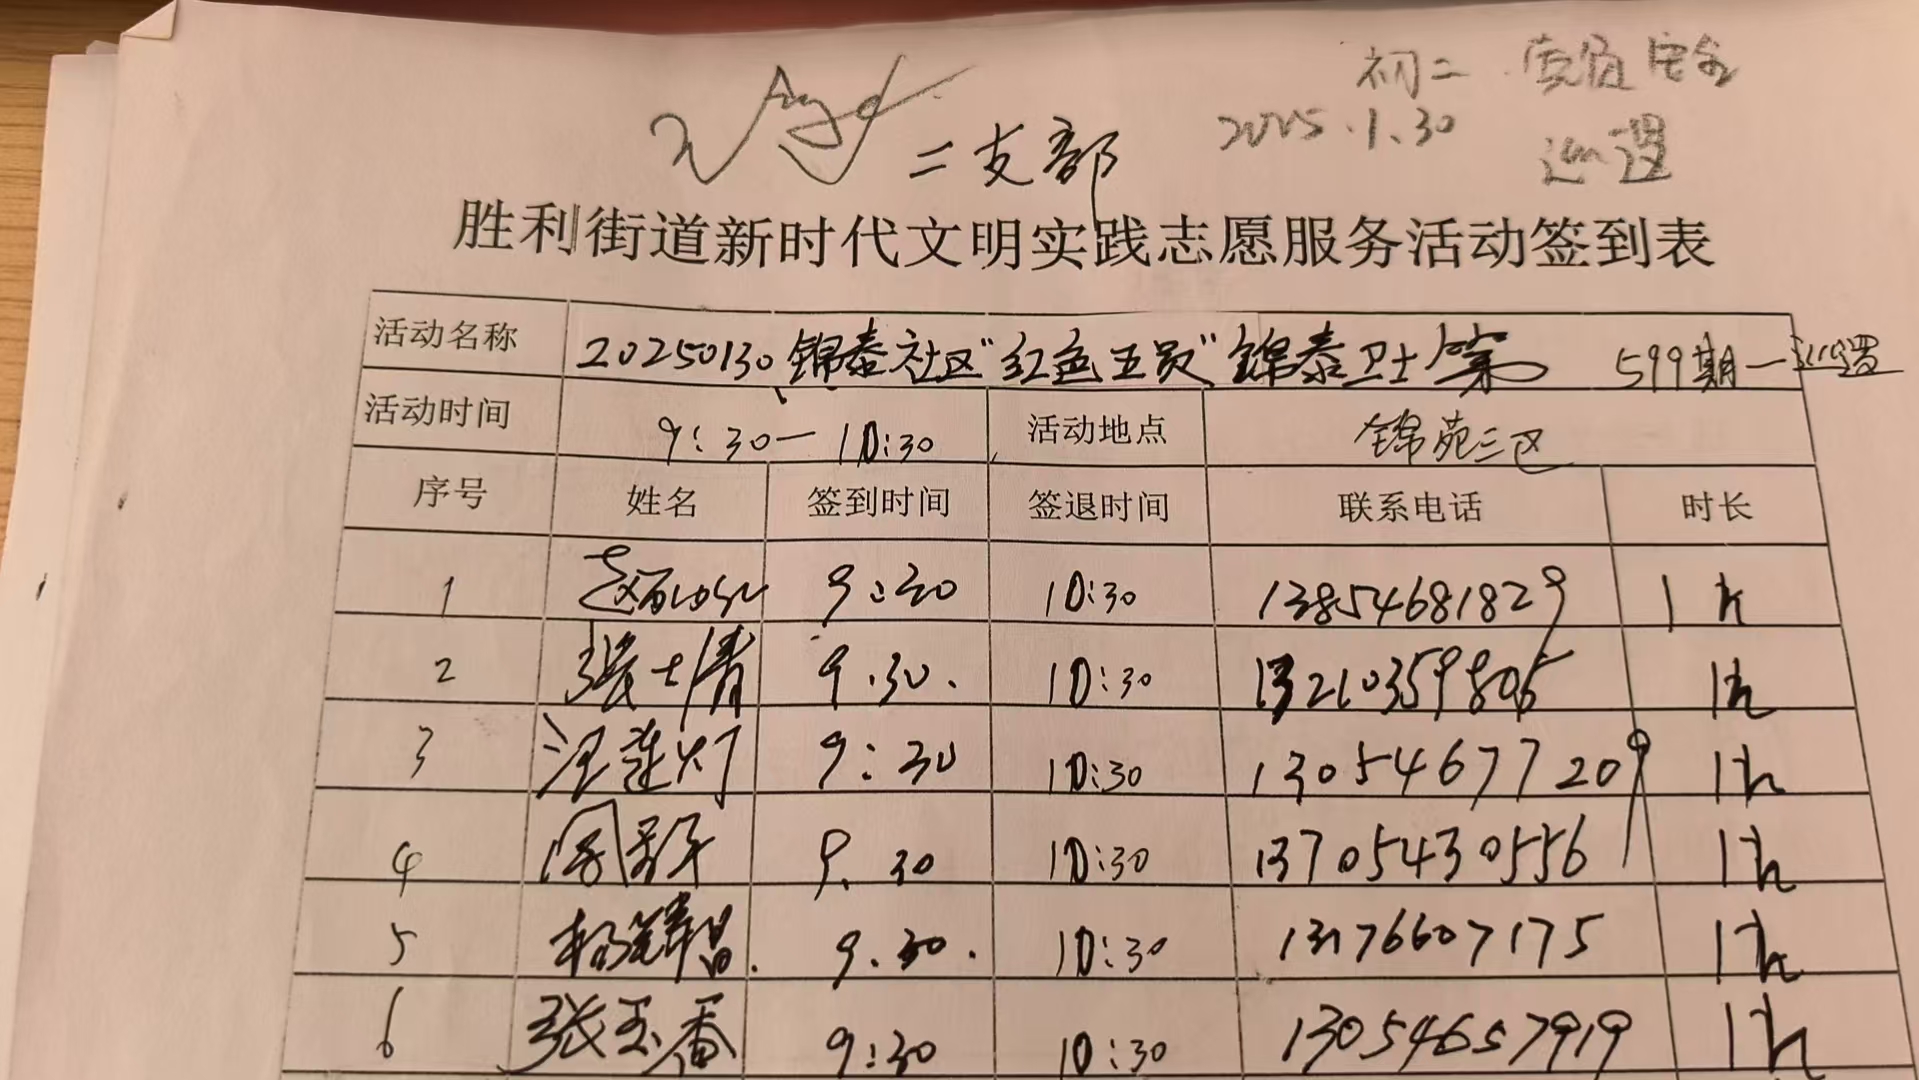 初二
二支部 2025.1.30 巡逻
胜利街道新时代文明实践志愿服务活动签到表
活动名称 20250130锦泰社区“红色五员”锦泰卫士第 599期一巡逻
活动时间 9:30一10:30 活动地点 锦苑三区
序号 姓名 签到时间 签退时间 联系电话 时长
1 9:30 10:30 13854681829 1h
2 张士清 9.30. 10:30 13210359805 1h
3 汪莲灯 9:30 10:30 13054677209 1h
4 9.30 10:30 13705430556 1h
5 杨辉昌. 9.30. 10:30 13176607175 1h
6 张玉香 9:30 10:30 13054657919 1h